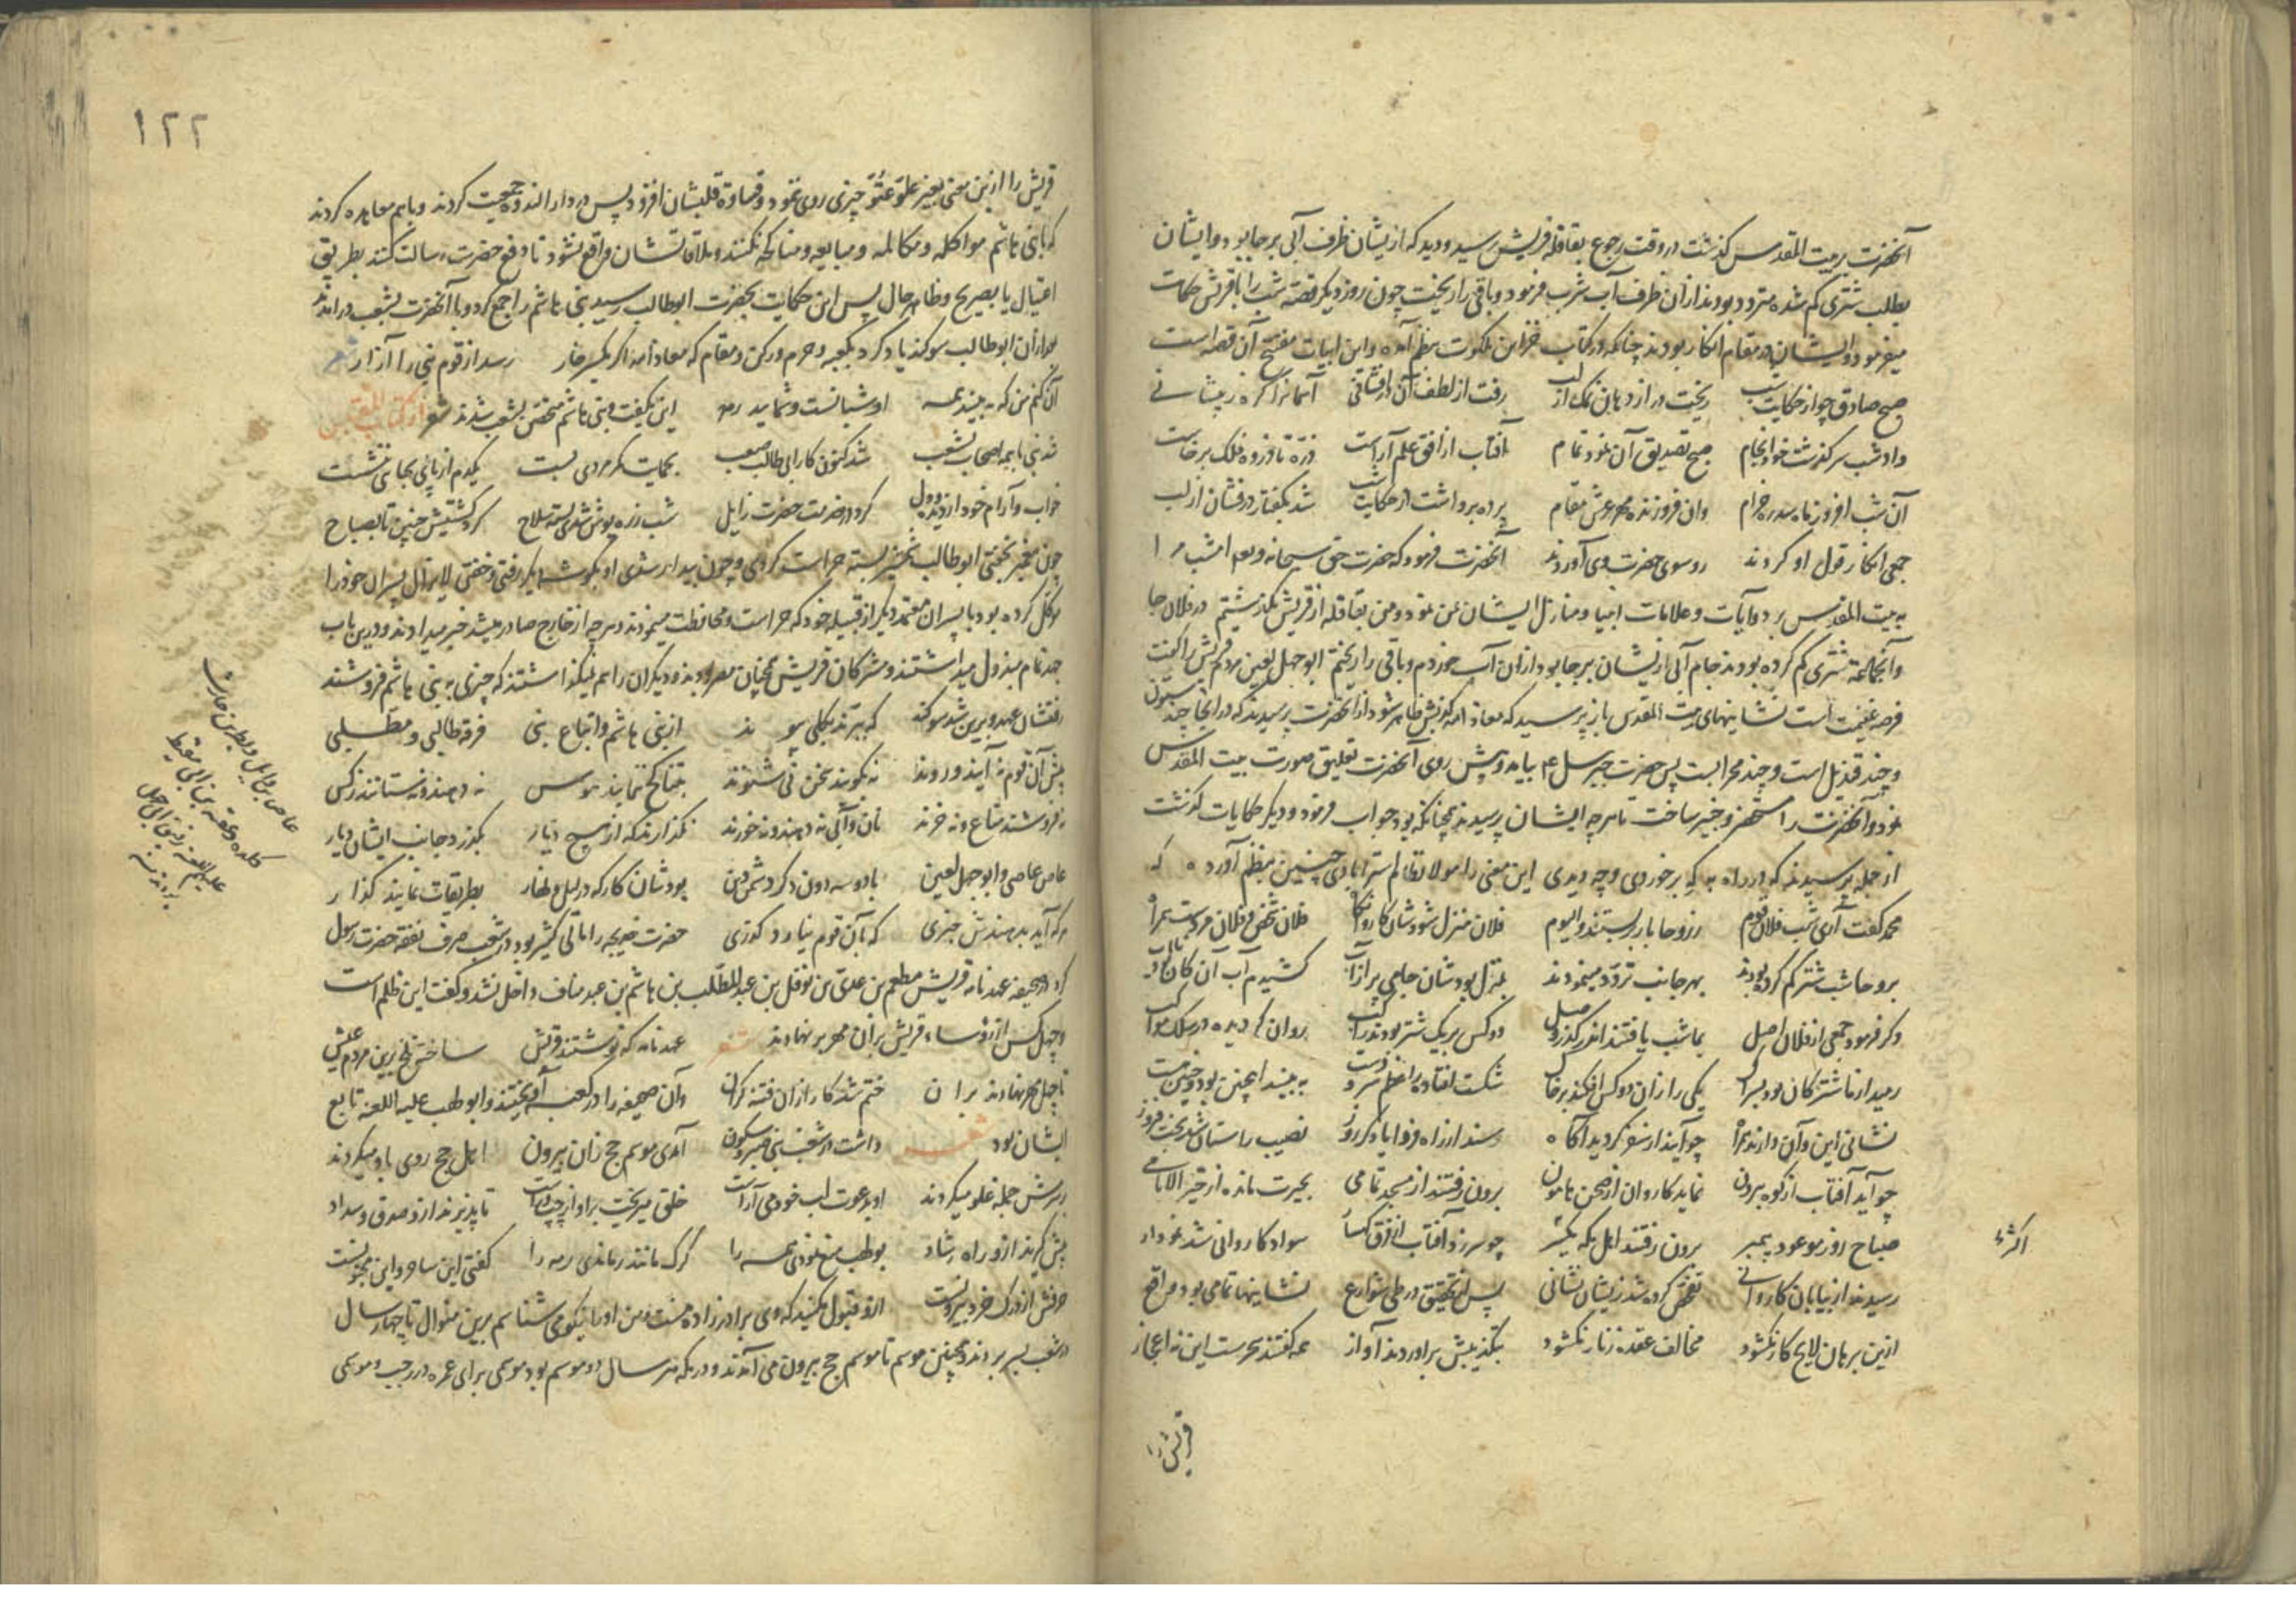 آنحضرت به بیت المقدس کذشت در وقت رجوع بقافله قریش رسید و دید که از ایشان ظرف آبی بر جا بود و ایشان
بطلب شتری کم شده متردد بودند از آن ظرف آب شرب فرمود و باقی را ریخت چون روز دیکر قصه شب را با قریش حکایت
میفرمود و ایشان در مقام انکار بودند چنانکه در کتاب خزاین ملکوت بنظم آمده و این ابیات مفتتح آن قصه است
صبح صادق چو از حکایت شب ریخت در از دهان نمک از لب رفت از لطف آن درافشانی آسمانرا کره ز پیشانی
داد شب سرکذشت خود انجام صبح تصدیق آن نمود تمام آفتاب از افق علم آراست ذره تا ذروه فلک برخاست
آن شب افروز ماه سدره خرام وان فروزنده مهر عرش مقام پرده برداشت از حکایت شب شد بکفتار درفشان از لب
جمعی انکار قول او کردند رو سوی حضرت وی آوردند آنحضرت فرمود که حضرت حق سبحانه و تعالی امشب مرا
به بیت المقدس برد و آیات و علامات انبیا و منازل ایشان بمن نمود و من بقافله از قریش بکذشتم در فلان جا
و آنجماعة شتری کم کرده بودند جام آبی از یشان بر جا بود از ان آب خوردم و باقی را ریختم ابو جهل لعین مردم قریش را کفت
فرصه غنیمت است نشاینهای بیت المقدس باز پرسید که معاذ الله کذبش ظاهر شود از آنحضرت پرسیدند که در آنجا چند ستون
و چند قندیل است و چند محرابست پس حضرت جبرسل ع م بیامد و پیش روی آنحضرت تعلیق صورت بیت المقدس
نمود و آنحضرت را مستحضر و خبیر ساخت تا هر چه ایشان پرسیدند چنانکه بود جواب فرمود و دیکر حکایات کذشت
از جمله پرسیدند که در راه به که برخوردی و چه دیدی این معنی را مولانا نظام استرابادی چنین بنظم آورده که
محمد کفت آری شب فلان قوم ز روحا بار بر بستند و الیوم فلان منزل شود شان کاروانکاه فلان شخص و فلان مردست همراه
بروحا شب شتر کم کرده بودند بهر جانب تردد مینمودند بمنزل بودشان جامی پر از آب کشیدم آب آن کان بود نایاب
دکر فرمود جمعی از فلان اصل بما شب یافتند اندر کذر وصل دو کس بر یک شتر بودند راکب روان کردیده در سلک مواکب
رمید از ما شتر کان بود سرکش یکی را زان دو کس افکند بر خاک شکست افتاده را عظم سر و دست به بینید اینچنین بود و چنین هست
نشانی این و آن دارند همراه چو آیند از سفر کردید آکاه رسند از راه فردا بامداد روز نصیب راستان شد بخت فیروز
چو آید آفتاب از کوه بیرون نماید کاروان از صحن هامون برون رفتند از مسجد تمامی بحیرت مانده از خیر الانامی
صباح روز موعود پیمبر برون رفتند اهل مکه یکسر چو سر زد آفتاب از افق کسار سواد کاروانی شد نمودار
رسیدند از بیابان کاروانی تفحص کرده شد ز یشان نشانی پس از تحقیق در طی شوارع نشاینها تمامی بود واقع
ازین برهان لایح کار نکشود مخالف عقده زنار نکشود بتکذیبش برآوردند آواز همه کفتند سحرست این نه اعجاز
قریش را
اکثر
١٢٢
قریش را ازین معنی بغیر علو و عتو چیزی روی ننمود و قساوة قلبشان افزود پس در دار الندوه جمعیت کردند و باهم معاهده کردند
که با بنی هاشم مواکله و مکالمه و مبایعه و مناکحه نکنند و ملاقاتشان واقع نشود تا دفع حضرت رسالت کنند بطریق
اغتیال یا بصریح و ظاهر حال پس این حکایت بحضرت ابوطالب رسید بنی هاشم را جمع کرد و با آنحضرت بشعب درآمدند
بعد از آن ابوطالب سوکند یاد کرد بکعبه و حرم و رکن و مقام که معاذ الله اکر یکسر خار رسد از قوم نبی را آزار شعر
آن کنم من که به بیند همه او شبانست و شمایید رمه این بکفت و بنی هاشم متحصن بشعب شدند شعر از کتاب
شد نبی با همه اصحاب بشعب شد کنون کار ابی طالب صعب بحمایت کمر مردی بست یکدم از پای بجایی ننشست
خواب و آرام خود از دیده و دل کرد در خدمت حضرت زایل شب زره پوش شدی بسته سلاح کرد کشتیش چنین تا بصباح
چون پیغمبر بخفتی ابوطالب شمشیر بسته حراست کردی و چون بیدار شدی او بکوشه دیکر رفتی و خفتی لایزال پسران خود را
موکل کرده بود با پسران معتمد دیکر از قبیله خود که حراست و محافظت مینمودند و هرچه از خارج صادر میشد خبر میدادند و درین باب
جهد تمام مبذول میداشتند و مشرکان قریش همچنان مصر بودند و دیکران را هم نمیکذاشتند که چیزی به بنی هاشم فروشند
رفتشان عهد و برین شد سوکند که ببرند بکلی پیوند از بنی هاشم و اتباع نبی فرقه طالبی و مطلبی
پیش آن قوم نه آیند و روند نه بکویند سخن نی شنوند بتناکح ننمایند هوس نه دهند و نستانند ز کس
نه فروشند متاع و نه خرند نان و آبی نه دهند و نه خورند نکذارند که از هیچ دیار بکذرد جانب ایشان دیار
عاص عاصی و ابو جهل لعین با دو سه دون دکر دشمن دین بودشان کار که در لیل و نهار بطریقات نمایند کذار
هر که آید بدهندش خبری که بآن قوم نیارد کذری حضرت خدیجه را اماالی کثیر بود در شعب صرف نفقه حضرت رسول
کرد در صحیفه عهدنامه قریش مطعم بن عدی بن نوفل بن عبد المطلب بن هاشم بن عبد مناف داخل نشد و کفت این ظلم است
و چهل کس از رؤساء قریش بر آن مهر بر نهادند شعر عهدنامه که نوشتند قریش ساختش تلخ برین مردم عیش
تا چهل مهر نهادند بر ان ختم شد کار از ان فتنه کران و آن صحیفه را در کعبه آویختند و ابو لهب علیه اللعنه تابع
ایشان بود شعر داشت در شعب نبی صبر و سکون آمدی موسم حج زان بیرون اهل حج روی باو میکردند
بر سرش جمله غلو میکردند او بدعوت لب خود می آراست خلق میریخت براو از چپ و راست تا پذیرند ازو صدق و سداد
پیش کیرند ازو راه رشاد بو لهب منع نمودی همه را کرک مانند رماندی رمه را کفتی این ساحر و این مجنونست
حرفش از درک خرد بیرونست ازو قبول مکنید که وی برادر زاده منست و من او را نیکو می شناسم برین منوال تا چهار سال
در شعب بسر بردند و همچنین موسم تا موسم حج بیرون می آمدند و در مکه هر سال دو موسم بود موسمی برای عمره در رجب و موسمی
عاص بن وایل و نضر بن حارث
کلده و عقبة بن ابی معیط
علیهم اللعنه رفیق ابی جهل
بودند منه